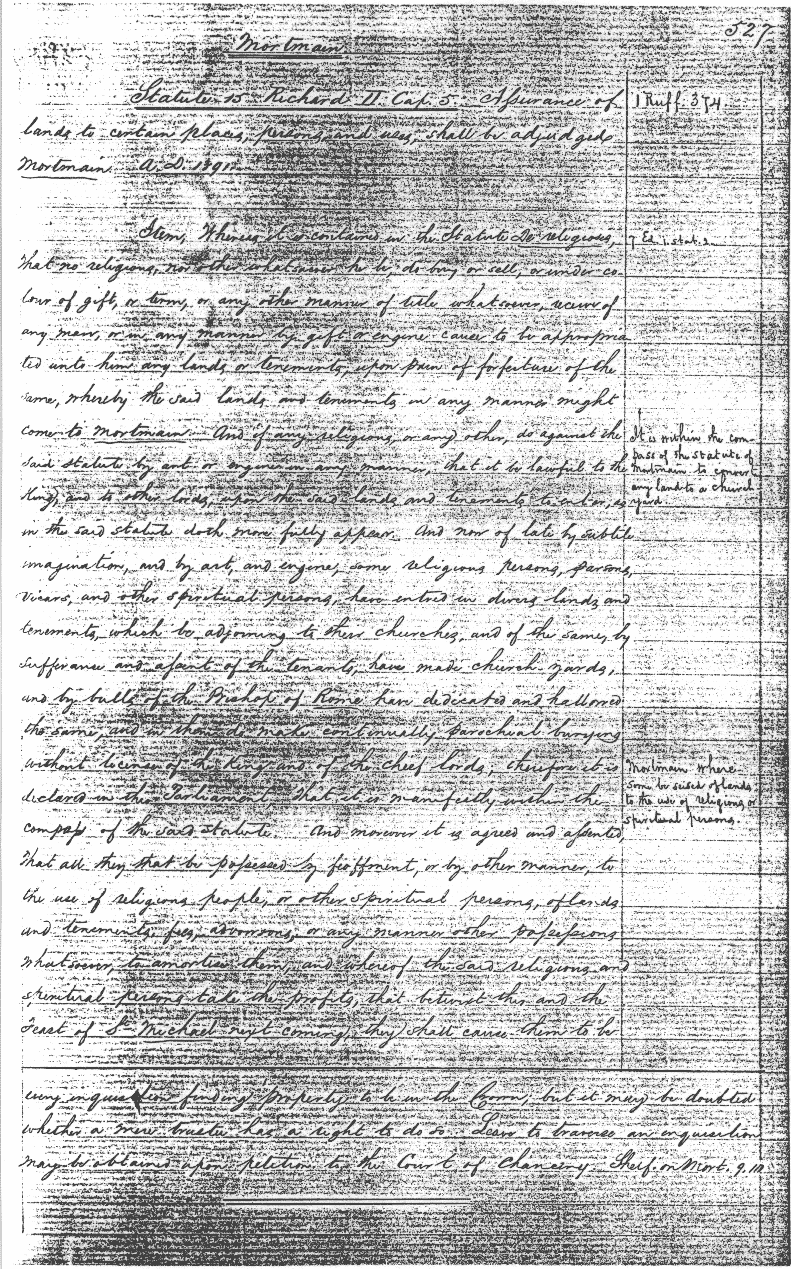 527
Mortmain
Statute 15 Richard II. Cap. 5. Assurance of
1 Ruff. 374.
lands to certain places, persons, and uses, shall be adjudged
Mortmain. A.D. 1391.
Item, Whereas it is contained in the Statute De religiosis,
7 Ed. 1. stat. 2.
That no religious, nor other whatsoever he be, do buy or sell, or under co-
lour of gift, or term, or any other manner of title whatsoever, receive of
any man, or in any manner by gift or engine cause to be appropria
ted unto him any lands or tenements, upon pain of forfeiture of the
same, whereby the said lands and tenements in any manner might
come to Mortmain. And if any religious, or any other, do against the
said statute by art or engine in any manner, that it be lawful to the
King, and to other lords, upon the said lands and tenements to enter, as
It is within the com-
pass of the statute of
Mortmain to convert
any land to a church
yard.
in the said statute doth more fully appear. And now of late by subtile
imagination, and by art, and engine, some religious persons, parsons,
vicars, and other spiritual persons, have entred in divers lands and
tenements, which be adjoining to their churches, and of the same, by
sufferance and assent of the tenants, have made church yards,
and by bulls of the Bishop of Rome have dedicated and hallowed
the same, and in them do make continually parochial burying
without license of the King and of the chief lords, therefore it is
declared in this Parliament, That it is manifestly within the
compass of the said statute. And moreover it is agreed and assented,
Mortmain where
some be seised of lands
to the use of religious or
spiritual persons.
That all they that be possessed by feoffment, or by other manner, to
the use of religious people, or other spiritual persons, of lands
and tenements, fees, advowsons, or any manner other possessions
whatsoever, to amortise them, and whereof the said religious and
spiritual persons take the profits, that betwixt this and the
Feast of St. Michael next coming, they shall cause them to be
inquisition finding property to be in the Crown, but it may be doubted
whether a mere trustee has a right to do so. Leave to traverse an inquisition
may be obtained upon petition to the Court of Chancery. Shelf. on Mort. 9. 10.